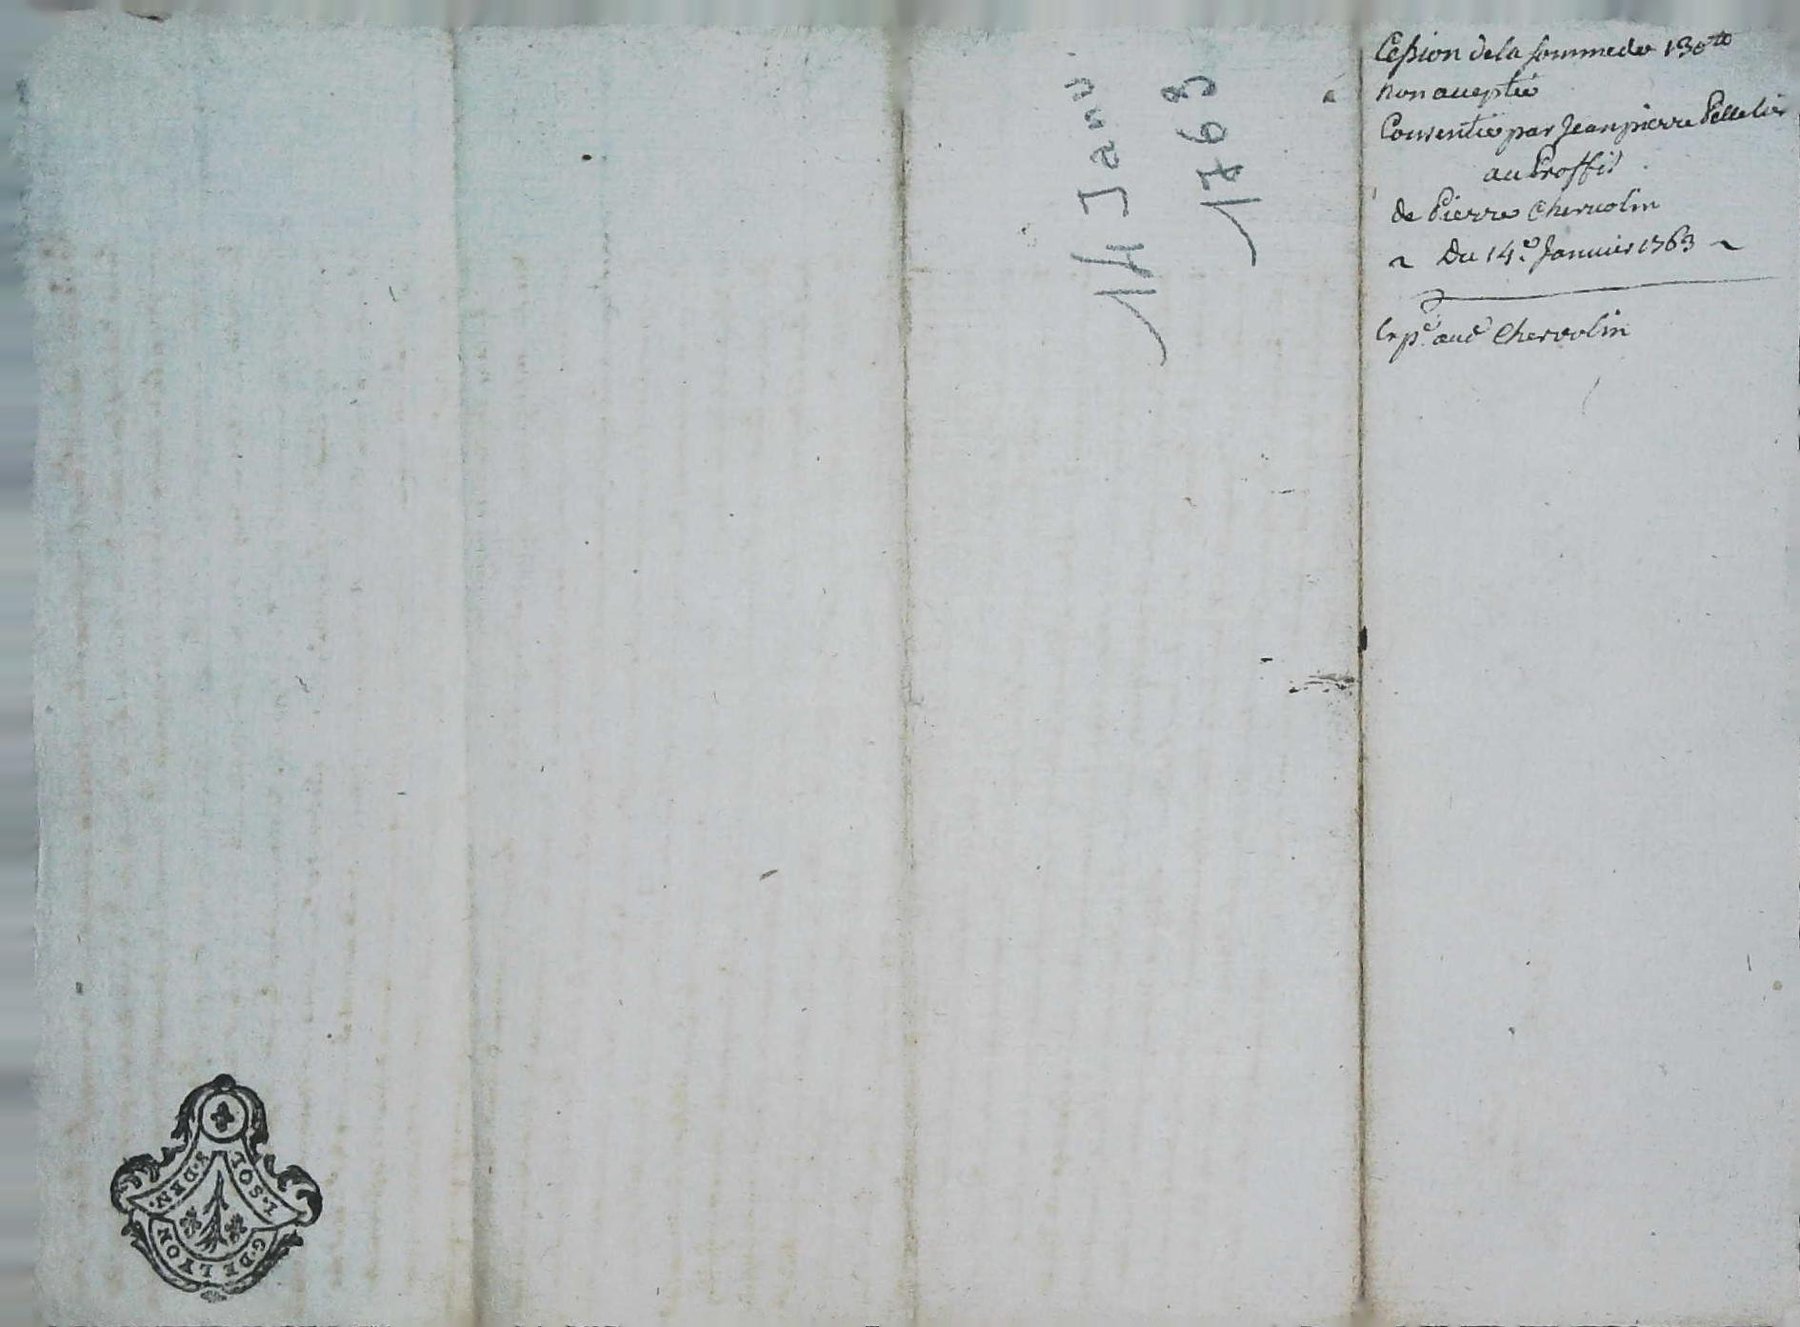 Cession de la somme de 130tt
non acceptée
Consentie par Jean pierre Pelletier
au Proffit
de Pierre Chervolin
~ Du 14e. Janvier 1763 ~
Exp.e aud.t Chervolin
14 Janv
1763
UN SOL. 4. DEN.
G. DE LYON